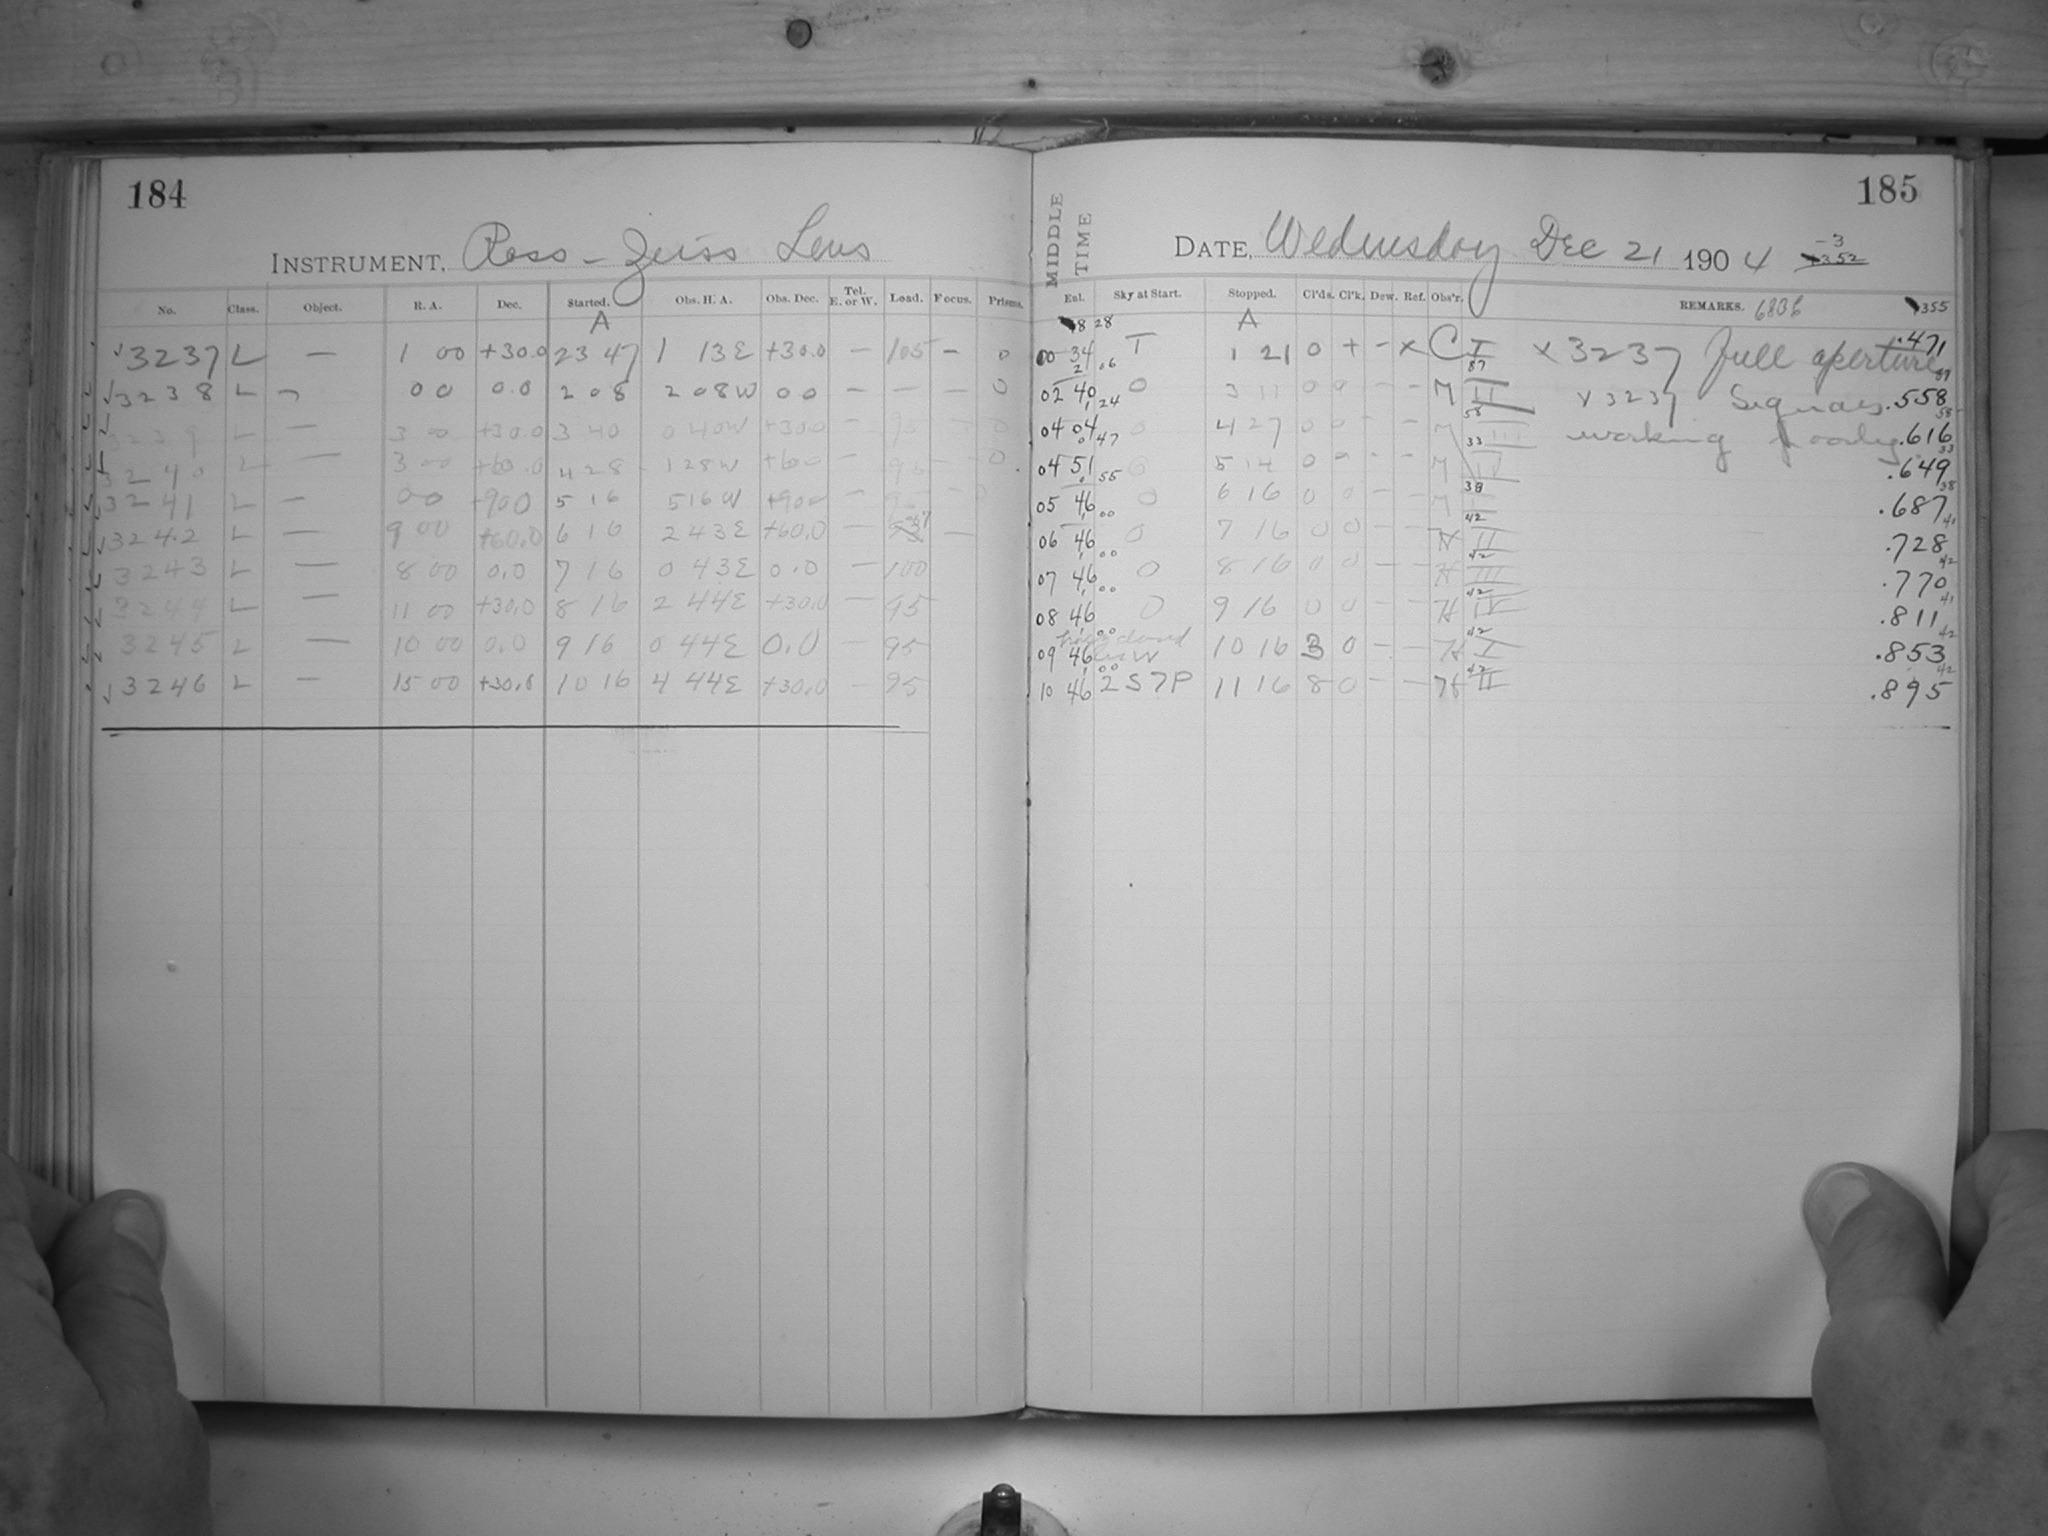 184
INSTRUMENT, Ross - Zeiss Lens
No. Class. Object. R. A. Dec. Started. Obs. H. A. Obs. Dec. Tel. E. or W. Load. Focus. Prisms.
A
3237 L — 1 00 +30.0 23 47 1 13E +30.0 — 105 — 0
3238 L 0 0 0.0 2 08 2 08W 00 — — — 0
3239 L — 3 00 +30.0 3 40 0 40W +30.0 — 95 0
3240 L — 3 00 +60.0 4 28 1 28W +60 — 95 — 0
3241 L — 00 +900 5 16 5 16W +900 — 95 — 0
3242 L — 9 00 +60.0 6 16 2 43E +60.0 — —
3243 L — 8 00 0.0 7 16 0 43E 0.0 — 100
3244 L — 11 00 +30.0 8 16 2 44E +30.0 — 95
3245 L — 10 00 0.0 9 16 0 44E 0.0 — 95
3246 L — 15 00 +30.0 10 16 4 44E +30.0 — 95
185
MIDDLE TIME
DATE, Wednesday Dec 21 1904
-3
352
Enl. Sky at Start. Stopped. Cl'ds. Cl'k. Dew. Ref. Obs'r. REMARKS. 6836 355
18 28 A
00 34 T 1 21 0 + - x C I x 3237 Full aperture .471
02 40 0 3 11 0 0 - - M II x 3237 Signals .558
04 04 0 4 27 0 0 - - M III working poorly .616
04 51 0 5 14 0 0 - - M IV .649
05 46 0 6 16 0 0 - - M I .687
06 46 0 7 16 0 0 - - H II .728
07 46 0 8 16 0 0 - - H III .770
08 46 0 9 16 0 0 - - H IV .811
09 46 W 10 16 3 0 - - H I .853
10 46 2S7P 11 16 8 0 - - H II .895